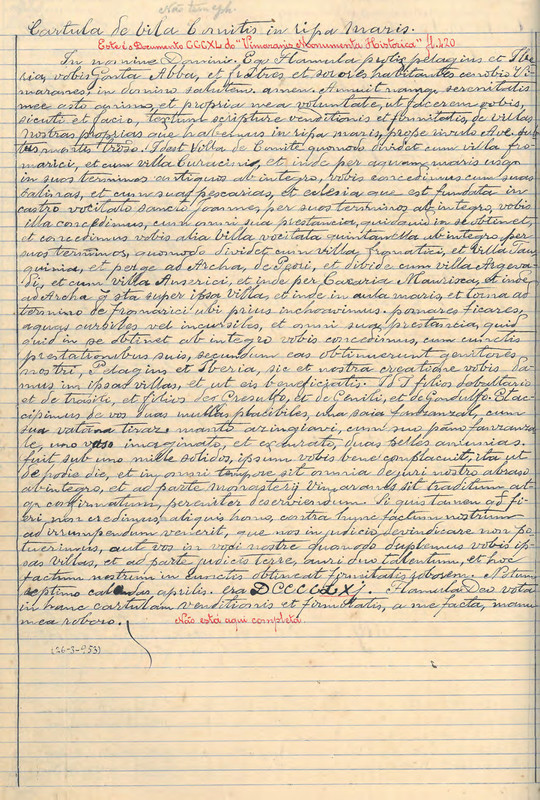 Não tem eph.
Cartula de vila Comitis in ripa maris.
Este é o Documento CCCXL do "Vimaranis Monumenta Historica" fl. 420
In nomine Domini. Ego Flamula prolis pelagius et Ibe
ria, vobis Gonta Abba, et fratres, et sorores habitantes cenobis Vi
maranes, in domino salutem. amen. Annuit namq. serenitatis
mee asto animo, et propria mea voluntate, ut facerem vobis,
sicuti et facio, textum scripture venditionis et firmitatis, de villas
nostras proprias que habemus in ripa maris, prope rivulo Ave, sub
tus montis terroso. Idest Villa de Comite quomodo dividet cum villa fro
marici, et cum villa Euracini, et inde per aquam maris usqe
in suos terminos antiquos ab integro, vobis concedimus cum suas
salinas, et cum suas pescarias, et eclesia que est fundata in
castro vocitato sancto Joanne, per suos terminos, ab integro, vobis
illa concedimus, cum omni sua prestancia, quidquid in se obtinet,
et concedimus vobis alia villa vocitata quintanella ab integro per
suos terminos, quomodo dividet cum villa fromarici, et villa Tau
quinia, et perge ad Archa, de Petri, et divide cum villa Argeva
di, et cum villa Anserici, et inde per Cavaria Maurisca, et inde
ad Archa q sta super ipsa villa, et inde in aula maris, et torna ad
termino de fromarici ubi prius inchoavimus. pomares ficares,
aquas cursiles vel incursiles, et omni sua prestancia, quid
quid in se obtinet ab integro vobis concedimus, cum cunctis
prestationibus suis, secundum eas obtinuerunt genitores
nostri, Pelagius et Iberia, sic et nostra creatione vobis da
mus in ipsas villas, et ut eis benefitiatis.
et de trasili, et filios de Cresulfo, et de Cenili, et de Gondulfo. Et ac
cipimus de vos duas mulas placibiles, una saia fanzanzal, cum
sua vatana tiraz. manto azingiavi, cum suo panno fanzanza
le, uno vaso imaginato, et exaurato, duas pelles anninias.
fuit sub uno mille solidos, ipsum vobis bene complacuit, ita ut
de hodie die, et in omni tempore sit omnia de juri nostro abraso
ab integro, et ad parte monasterij Vimaranes sit traditum at
qe confirmatum, perenniter deserviendum. Si quis tamen ad fi
eri, non credimus, aliquis homo, contra hunc factum nostrum
ad irrumpendum venerit, que nos in judicio devindicare non po
tuerimus, aut vos in voci nostre quomodo duplemus vobis ip
sas villas, et ad parte judicis terre, auri duo talentum, et hoc
factum nostrum in cunctis obtineat firmitatis roborem. Notum
septimo calendas aprilis. era DCCCCLXJ. Flamula Deo vota
in hanc cartulam venditionis et firmitatis, a me facta, manu
mea roboro.
Não está aqui completa.
(26-3-953)